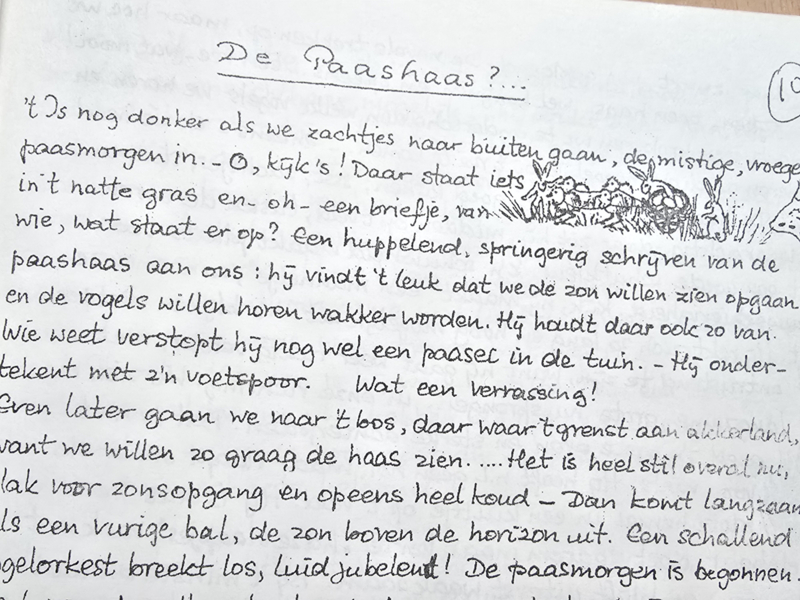 De Paashaas?...
10
't Is nog donker als we zachtjes naar buiten gaan, de mistige, vroege
paasmorgen in. - O, kijk's! Daar staat iets
in't natte gras en- oh- een briefje, van
wie, wat staat er op? Een huppelend, springerig schrijven van de
paashaas aan ons: hij vindt 't leuk dat we de zon willen zien opgaan
en de vogels willen horen wakker worden. Hij houdt daar ook zo van.
Wie weet verstopt hij nog wel een paasei in de tuin. - Hij onder-
tekent met z'n voetspoor. Wat een verrassing!
Even later gaan we naar 't bos, daar waar 't grenst aan akkerland,
want we willen zo graag de haas zien. .... Het is heel stil overal nu,
lak voor zonsopgang en opeens heel koud - Dan komt langzaam
ls een vurige bal, de zon boven de horizon uit. Een schallend
gelorkest breekt los, luid jubelend! De paasmorgen is begonnen.